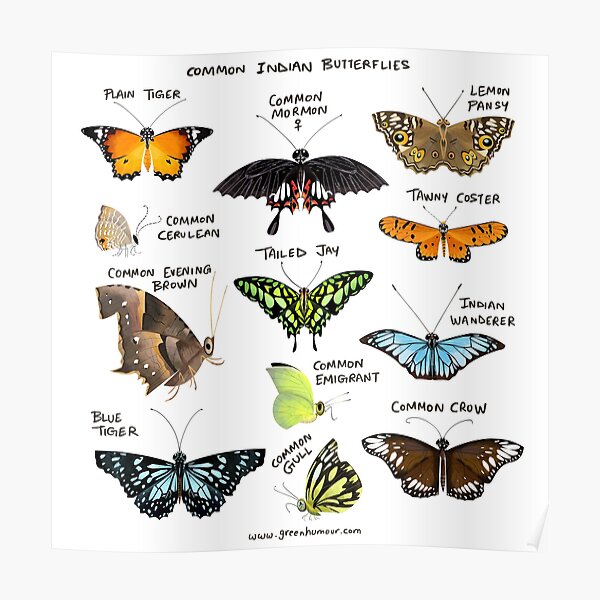 COMMON INDIAN BUTTERFLIES
PLAIN TIGER
COMMON
MORMON
♀
LEMON
PANSY
COMMON
CERULEAN
TAWNY COSTER
TAILED JAY
COMMON EVENING
BROWN
INDIAN
WANDERER
COMMON
EMIGRANT
BLUE
TIGER
COMMON CROW
COMMON
GULL
www.greenhumour.com